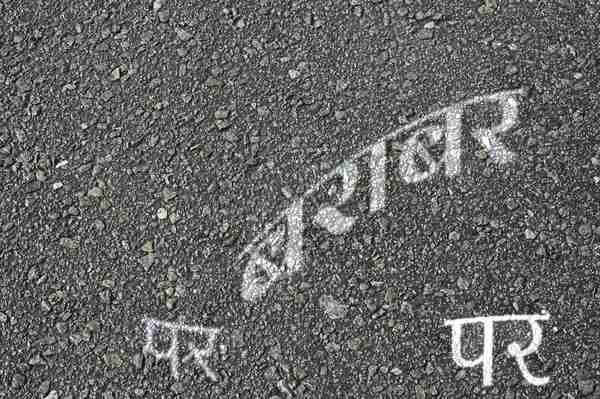 बराबर
पर पर